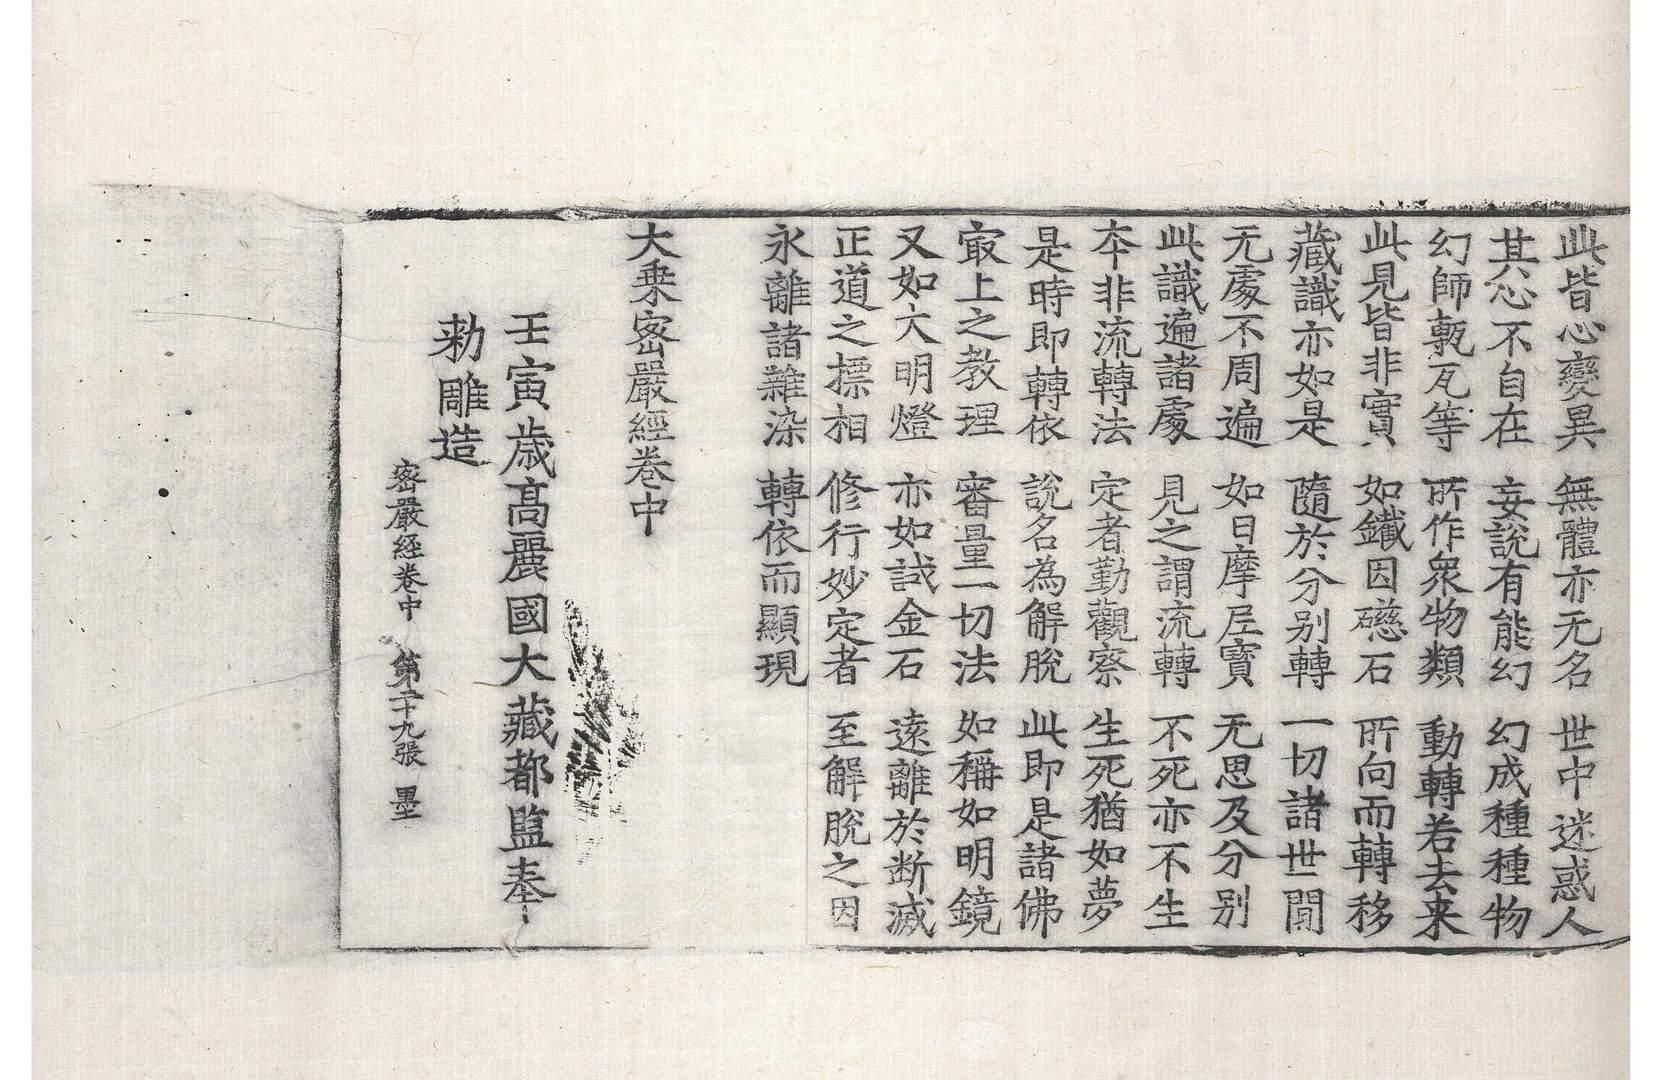 此皆心變異 無體亦无名 世中迷惑人
其心不自在 妄說有能幻 幻成種種物
幻師塼瓦等 所作衆物類 動轉若去来
此見皆非實 如鐵因磁石 所向而轉移
藏識亦如是 隨於分别轉 一切諸世間
无處不周遍 如日摩尼寶 无思及分别
此識遍諸處 見之謂流轉 不死亦不生
本非流轉法 定者勤觀察 生死猶如夢
是時即轉依 說名為解脫 此即是諸佛
㝡上之教理 審量一切法 如稱如明鏡
又如大明燈 亦如試金石 遠離於断滅
正道之摽相 修行妙定者 至解脫之因
永離諸雜染 轉依而顯現
大乗密嚴經卷中
壬寅歳高麗國大藏都監奉
勑雕造
密嚴経卷中 第二十九張 墨